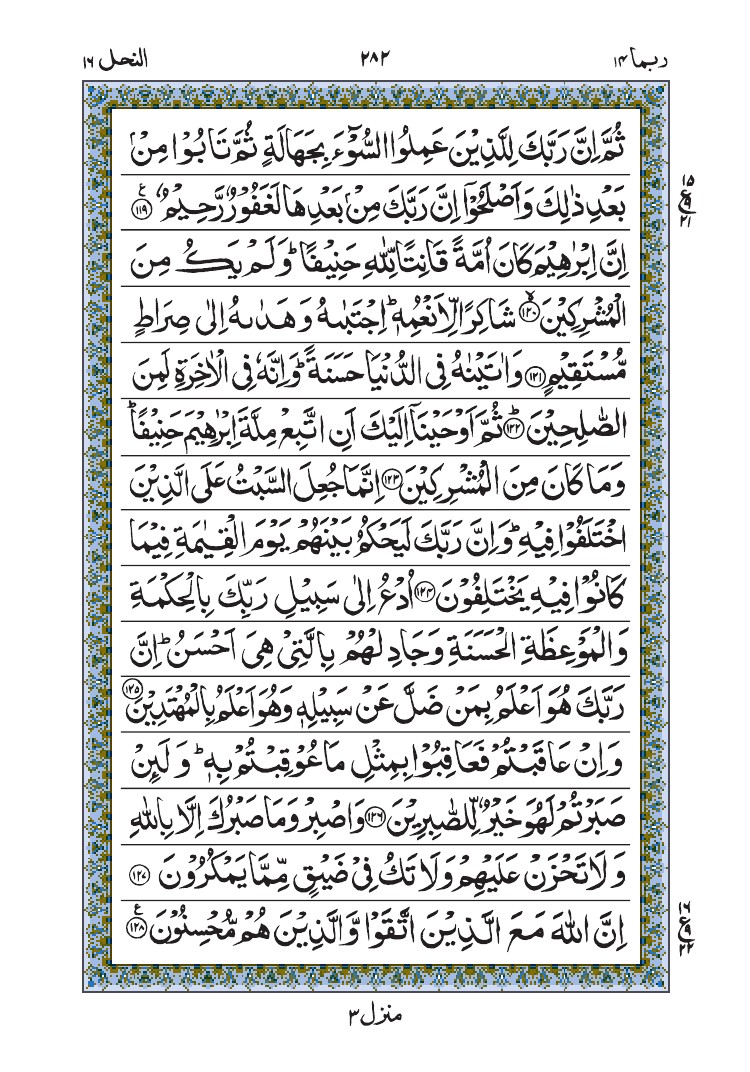 ربما ۱۴ ۲۸۲ النحل ۱۶
ثُمَّ اِنَّ رَبَّكَ لِلَّذِيْنَ عَمِلُوا السُّوْٓءَ بِجَهَالَةٍ ثُمَّ تَابُوْا مِنْۢ
بَعْدِ ذٰلِكَ وَاَصْلَحُوْٓا اِنَّ رَبَّكَ مِنْۢ بَعْدِهَا لَغَفُوْرٌ رَّحِيْمٌ ﴿۱۱۹﴾ ع
۱۵
ع
۲۱
اِنَّ اِبْرٰهِيْمَ كَانَ اُمَّةً قَانِتًا لِّلّٰهِ حَنِيْفًا ؕ وَلَمْ يَكُ مِنَ
الْمُشْرِكِيْنَ ﴿۱۲۰﴾ۙ شَاكِرًا لِّاَنْعُمِهٖ ؕ اِجْتَبٰىهُ وَهَدٰىهُ اِلٰى صِرَاطٍ
مُّسْتَقِيْمٍ ﴿۱۲۱﴾ وَاٰتَيْنٰهُ فِى الدُّنْيَا حَسَنَةً ؕ وَاِنَّهٗ فِى الْاٰخِرَةِ لَمِنَ
الصّٰلِحِيْنَ ﴿۱۲۲﴾ؕ ثُمَّ اَوْحَيْنَآ اِلَيْكَ اَنِ اتَّبِعْ مِلَّةَ اِبْرٰهِيْمَ حَنِيْفًا ؕ
وَمَا كَانَ مِنَ الْمُشْرِكِيْنَ ﴿۱۲۳﴾ اِنَّمَا جُعِلَ السَّبْتُ عَلَى الَّذِيْنَ
اخْتَلَفُوْا فِيْهِ ؕ وَاِنَّ رَبَّكَ لَيَحْكُمُ بَيْنَهُمْ يَوْمَ الْقِيٰمَةِ فِيْمَا
كَانُوْا فِيْهِ يَخْتَلِفُوْنَ ﴿۱۲۴﴾ اُدْعُ اِلٰى سَبِيْلِ رَبِّكَ بِالْحِكْمَةِ
وَالْمَوْعِظَةِ الْحَسَنَةِ وَجَادِلْهُمْ بِالَّتِىْ هِىَ اَحْسَنُ ؕ اِنَّ
رَبَّكَ هُوَ اَعْلَمُ بِمَنْ ضَلَّ عَنْ سَبِيْلِهٖ وَهُوَ اَعْلَمُ بِالْمُهْتَدِيْنَ ﴿۱۲۵﴾
وَاِنْ عَاقَبْتُمْ فَعَاقِبُوْا بِمِثْلِ مَا عُوْقِبْتُمْ بِهٖ ؕ وَلَئِنْ
صَبَرْتُمْ لَهُوَ خَيْرٌ لِّلصّٰبِرِيْنَ ﴿۱۲۶﴾ وَاصْبِرْ وَمَا صَبْرُكَ اِلَّا بِاللّٰهِ
وَلَا تَحْزَنْ عَلَيْهِمْ وَلَا تَكُ فِىْ ضَيْقٍ مِّمَّا يَمْكُرُوْنَ ﴿۱۲۷﴾
اِنَّ اللّٰهَ مَعَ الَّذِيْنَ اتَّقَوْا وَّالَّذِيْنَ هُمْ مُّحْسِنُوْنَ ﴿۱۲۸﴾ ع
۱۶
ع
۲۲
منزل ۳